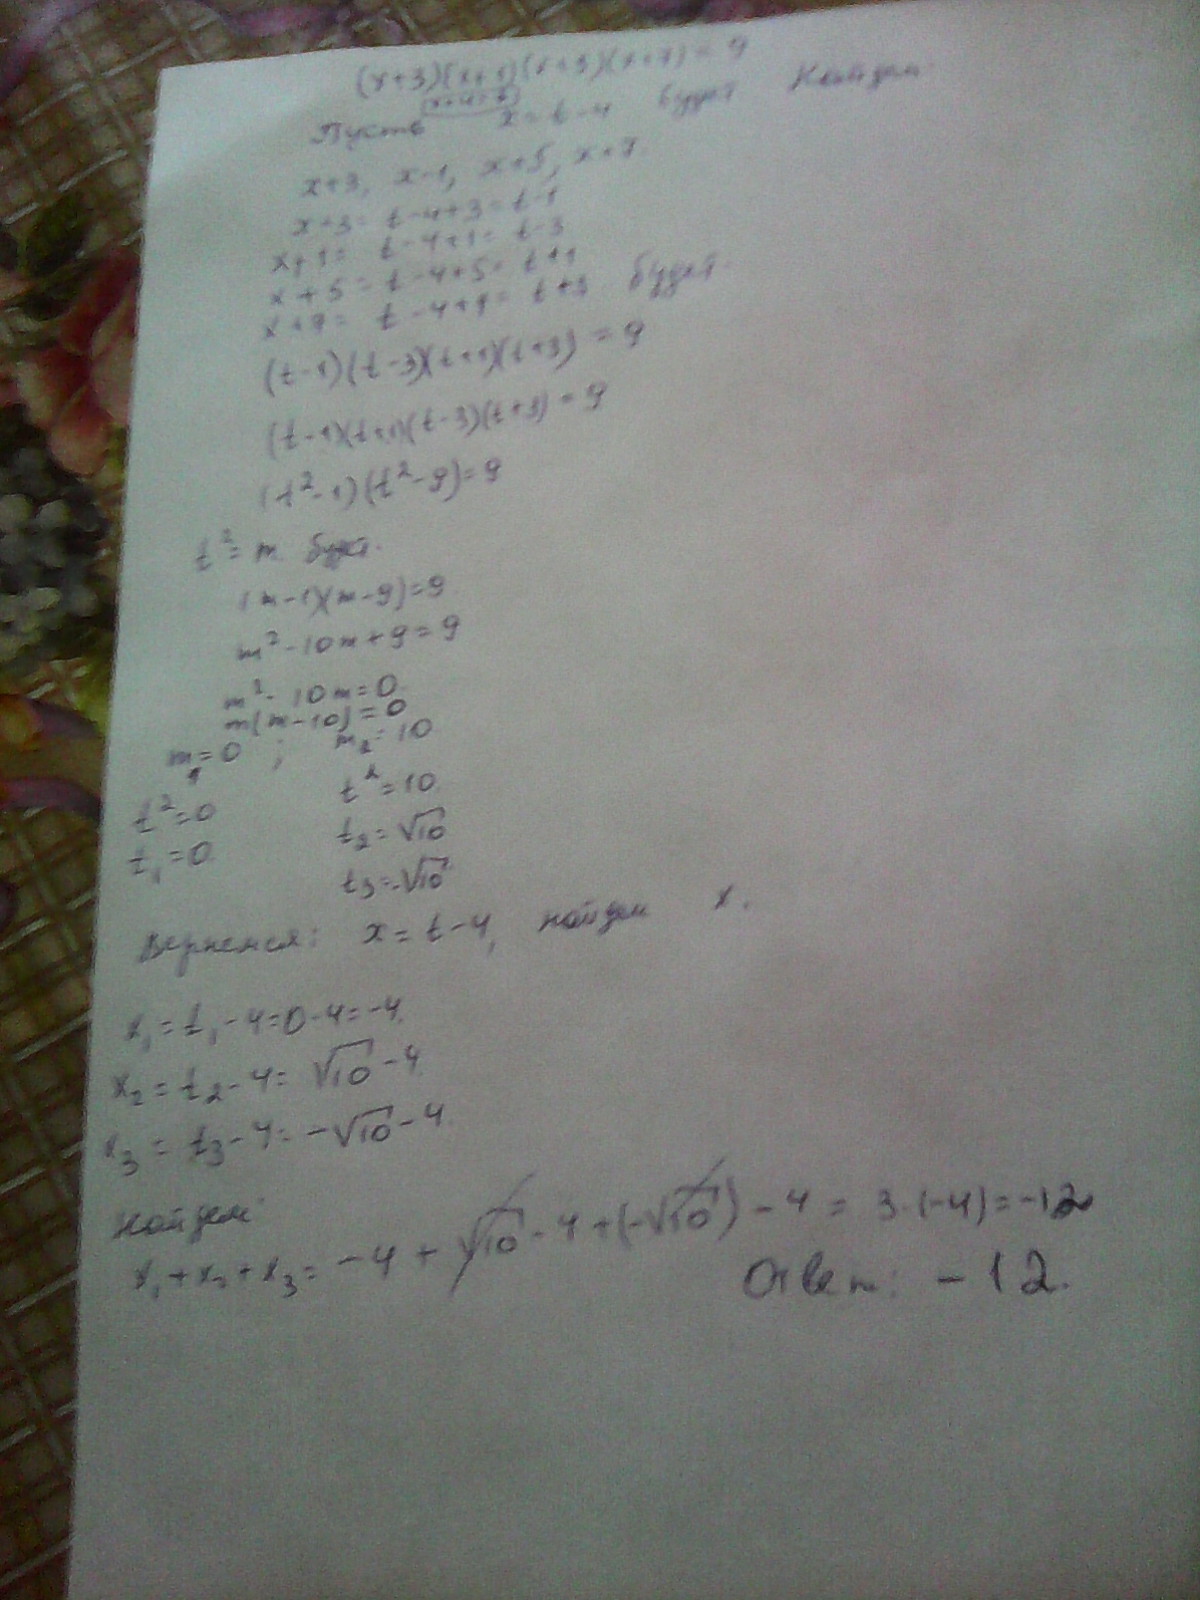 (x+3)(x+1)(x+5)(x+7) = 9
(x+4=t)
Пусть x = t-4 будет Найдем
x+3, x-1, x+5, x+7.
x+3= t-4+3= t-1
x+1= t-4+1= t-3
x+5= t-4+5= t+1
x+7= t-4+7= t+3 будет.
(t-1)(t-3)(t+1)(t+3) = 9
(t-1)(t+1)(t-3)(t+3) = 9
(t²-1)(t²-9)=9
t²=m будет.
(m-1)(m-9)=9
m²-10m+9=9
m²-10m=0.
m(m-10)=0
m₁=0 ; m₂=10
t²=0 t²=10.
t₁=0. t₂=√10
t₃=-√10
Вернемся: x=t-4, найдем x.
x₁=t₁-4=0-4=-4.
x₂=t₂-4= √10-4.
x₃=t₃-4= -√10-4.
Найдем
x₁+x₂+x₃= -4+ √10-4+(-√10)-4= 3·(-4)=-12
Ответ: -12.